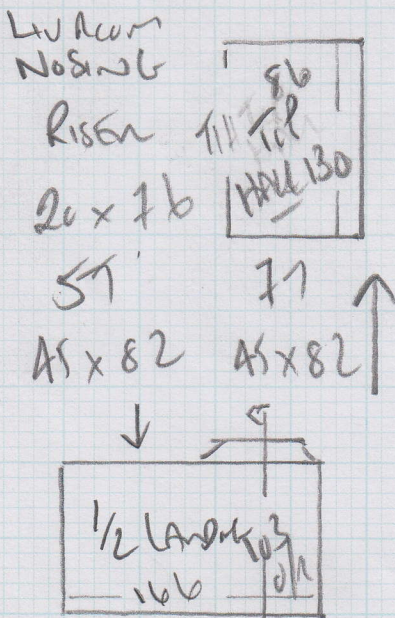 LIV ROOM
NOSING
RISER
20 x 76
5T
45 x 82
86
TOP
HALL 130
7T
45 x 82
1/2 LANDING
166
103